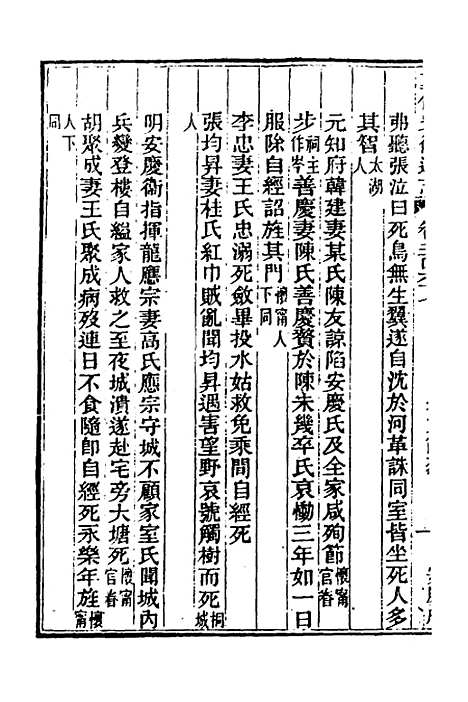 弗聽張泣曰死鳥無生翼遂自沈於河革誅同室皆坐死人多
其智太湖人
元知府韓建妻某氏陳友諒陷安慶氏及全家咸殉節懷甯官眷
步祠主作岑善慶妻陳氏善慶贅於陳未幾卒氏哀慟三年如一日
服除自經詔旌其門懷甯人下同
李忠妻王氏忠溺死斂畢投水姑救免乘間自經死
張均昇妻桂氏紅巾賊亂聞均昇遇害望野哀號觸樹而死桐城
人
明安慶衛指揮龍應宗妻高氏應宗守城不顧家室氏聞城內
兵變登樓自縊家人救之至夜城潰遂赴宅旁大塘死懷甯官眷
胡聚成妻王氏聚成病歿連日不食隨卽自經死永樂年旌懷甯
人下同